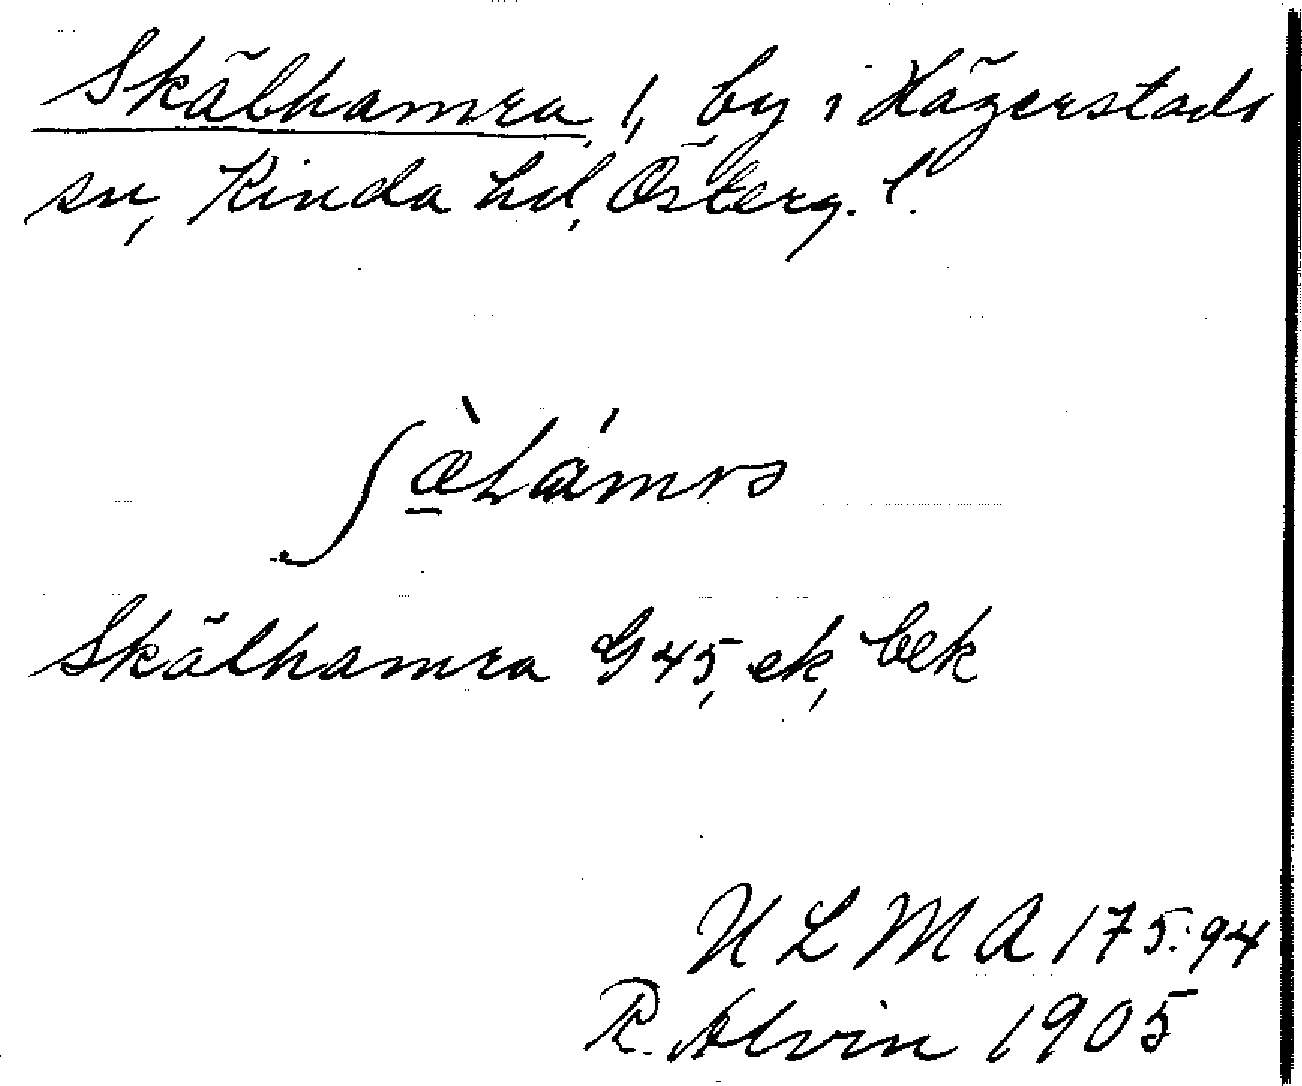 Skälhamra, 1, by i Hägerstads
sn, Kinda hd, Österg. l.
ʃæ̠̀hámrə
Skälhamra G 45, ek, bek
ULMA 175:94
R. Alvin 1905